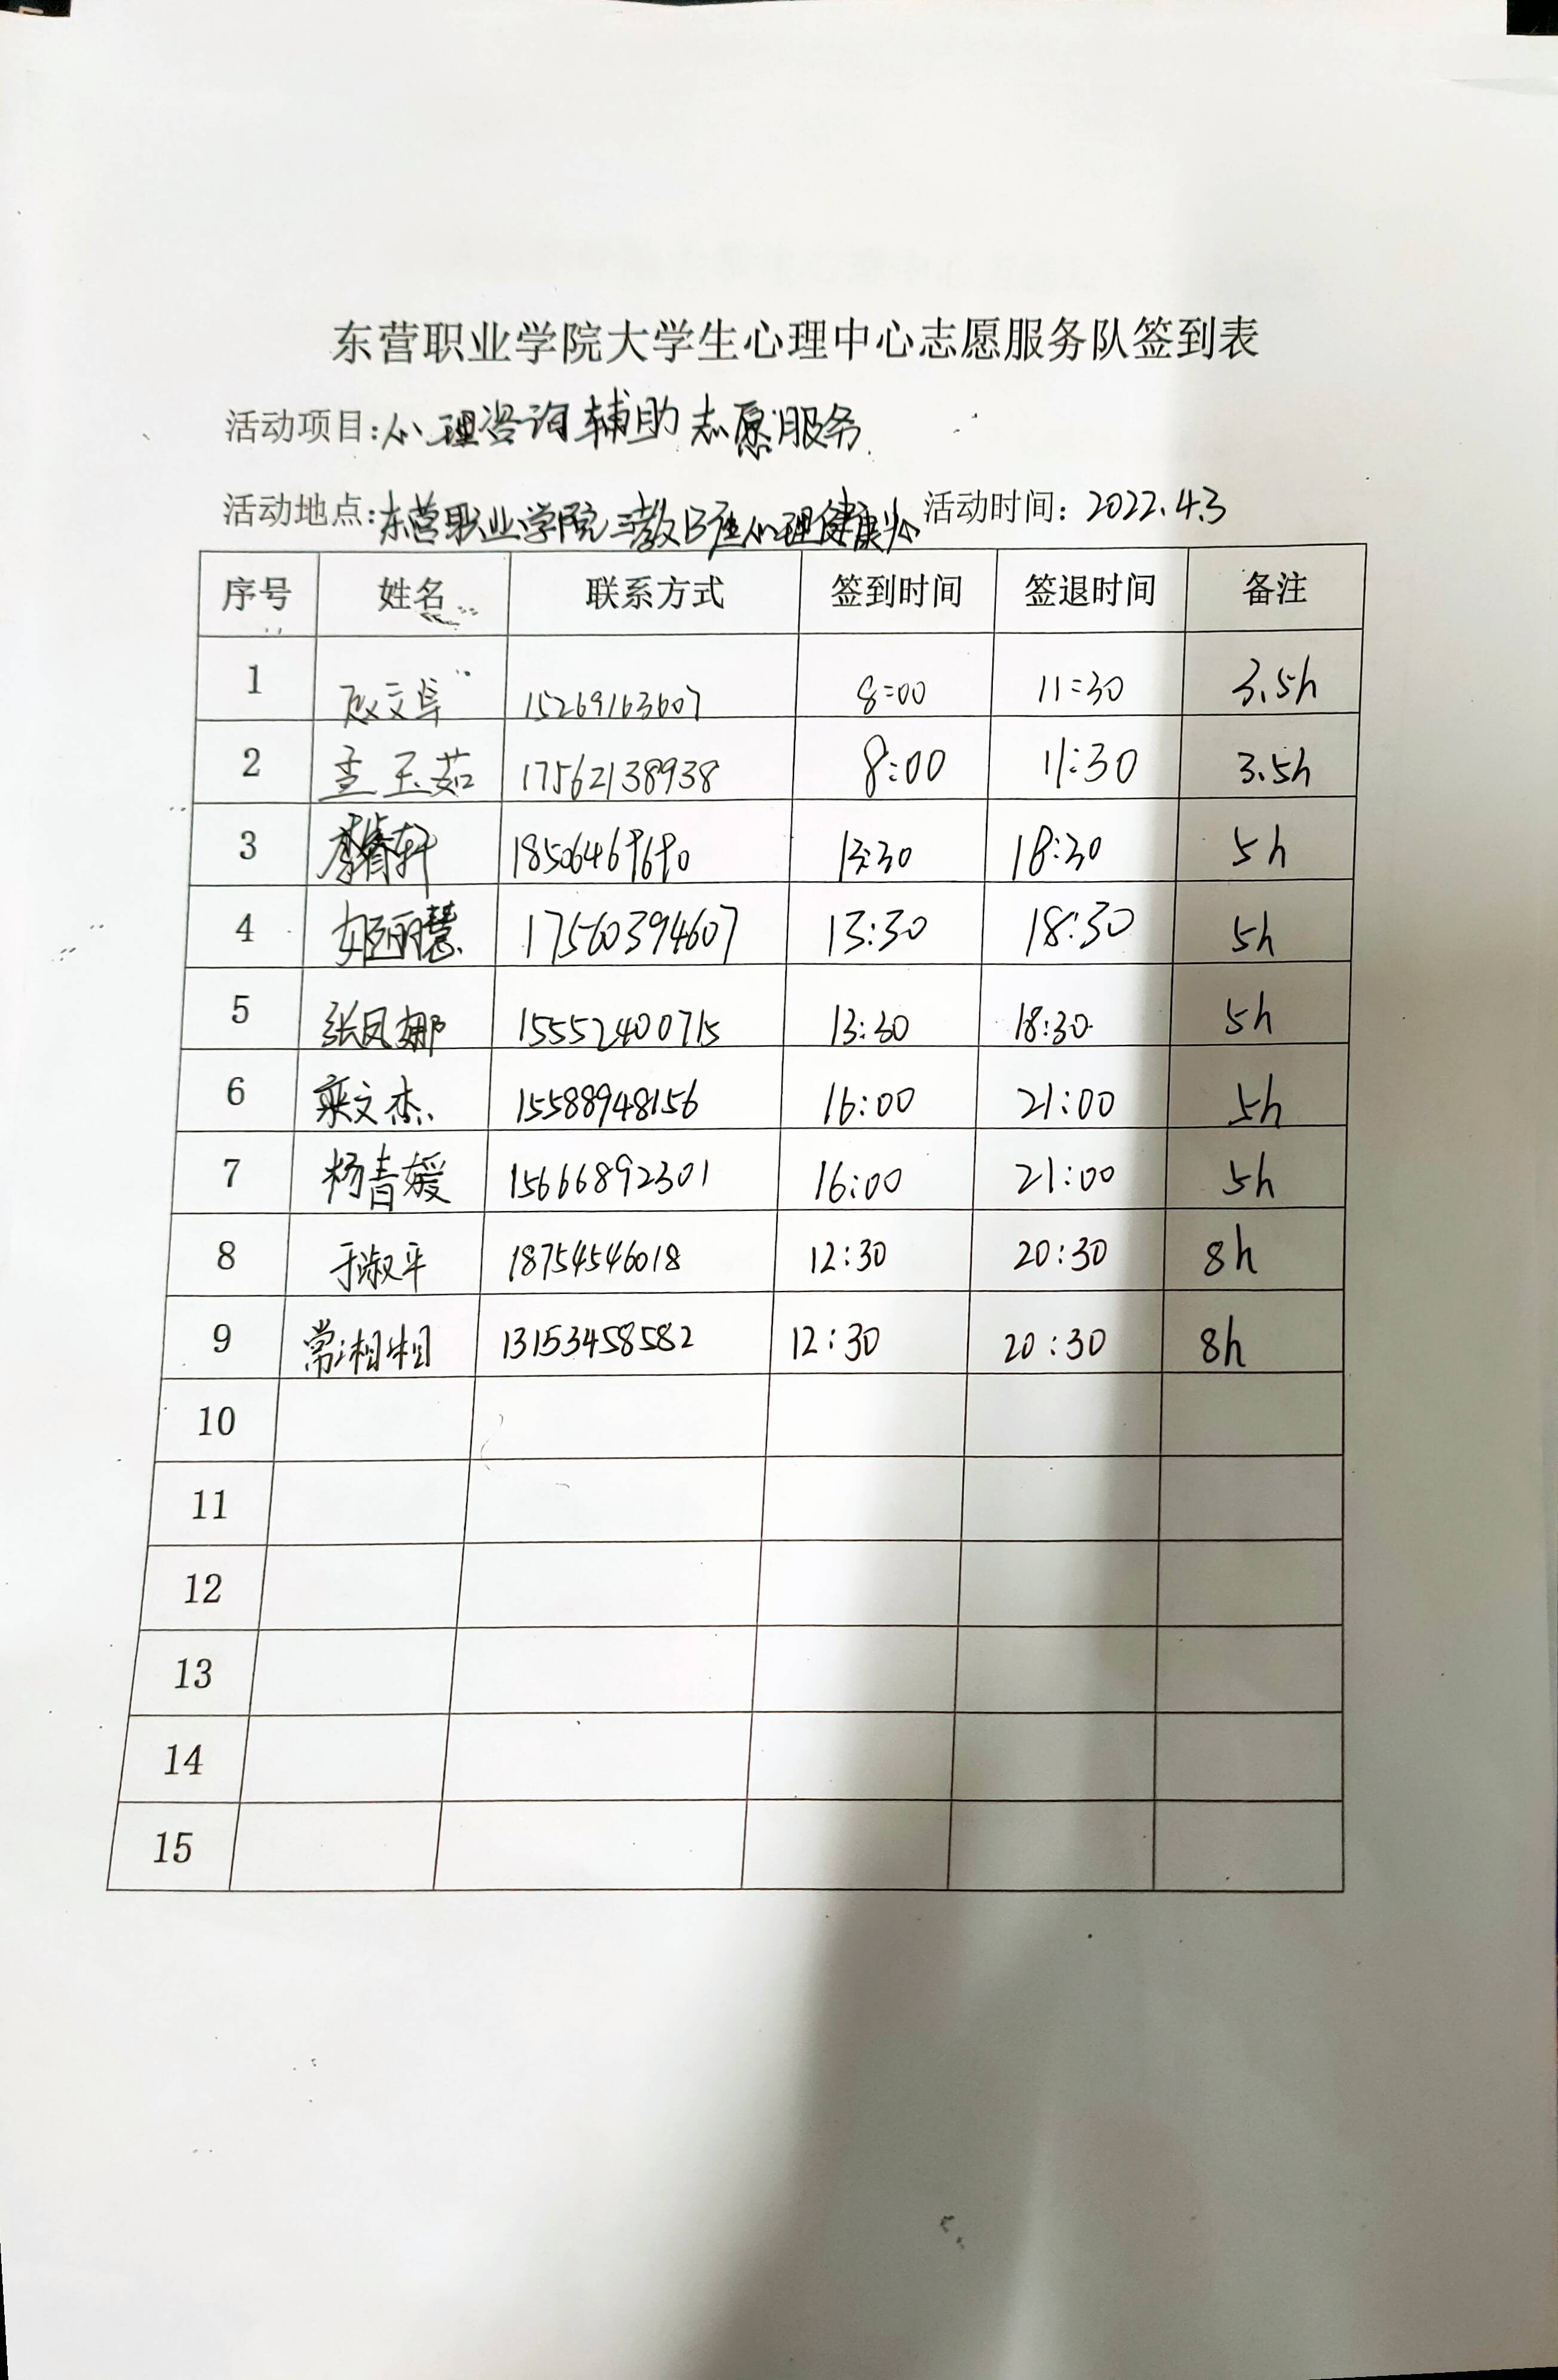 东营职业学院大学生心理中心志愿服务队签到表
活动项目:心理咨询辅助志愿服务
活动地点:东营职业学院三教B座心理健康 活动时间:2022.4.3
序号 姓名 联系方式 签到时间 签退时间 备注
1 15269163607 8:00 11:30 3.5h
2 玉茹 17562138938 8:00 11:30 3.5h
3 轩 18506469690 13:30 18:30 5h
4 姬丽慧 17560394607 13:30 18:30 5h
5 张凤娜 15552400715 13:30 18:30 5h
6 文杰 15588948156 16:00 21:00 5h
7 杨青媛 15666892301 16:00 21:00 5h
8 于淑平 18754546018 12:30 20:30 8h
9 常湘相 13153458582 12:30 20:30 8h
10
11
12
13
14
15